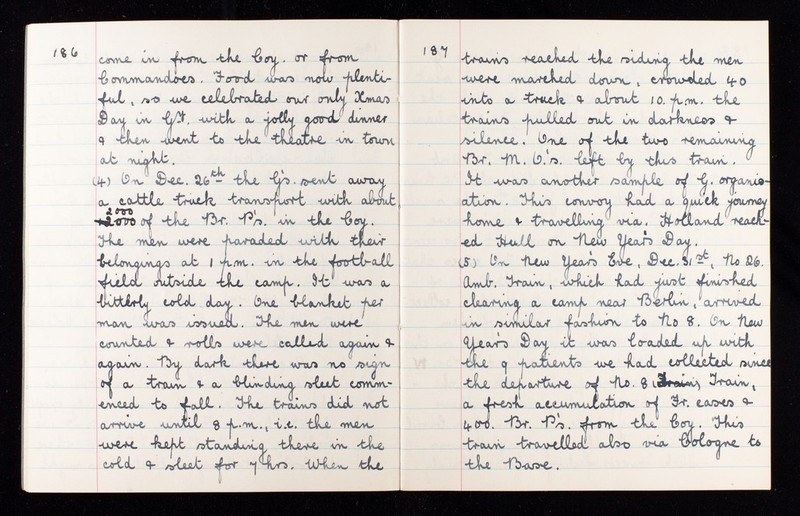 186
come in from the Coy. or from
Commandoes. Food was now plenti-
ful, so we celebrated our only Xmas
Day in Gy. with a jolly good dinner
& then went to the theatre in town
at night.
(4) On Dec. 26th the G's. sent away
a cattle truck transport with about
2000
of the Br. P's. in the Coy.
The men were paraded with their
belongings at 1 p.m. in the football
field outside the camp. It was a
bitterly cold day. One blanket per
man was issued. The men were
counted & rolls were called again &
again. By dark there was no sign
of a train & a blinding sleet comm-
enced to fall. The trains did not
arrive until 8 p.m., i.e. the men
were kept standing there in the
cold & sleet for 7 hrs. When the
187
trains reached the siding the men
were marched down, crowded 40
into a truck & about 10. p.m. the
trains pulled out in darkness &
silence. One of the two remaining
Br. M. O.'s. left by this train.
It was another sample of G. organis-
ation. This convoy had a quick journey
home & travelling via. Holland reach-
ed Hull on New Year's Day.
(5) On New Year's Eve, Dec. 31st, No 26.
Amb. Train, which had just finished
clearing a camp near Berlin, arrived
in similar fashion to No 8. On New
Year's Day it was loaded up with
the 9 patients we had collected since
the departure of No. 8 Train,
a fresh accumulation of Fr. cases &
400. Br. P's. from the Coy. This
train travelled also via Cologne to
the Base.